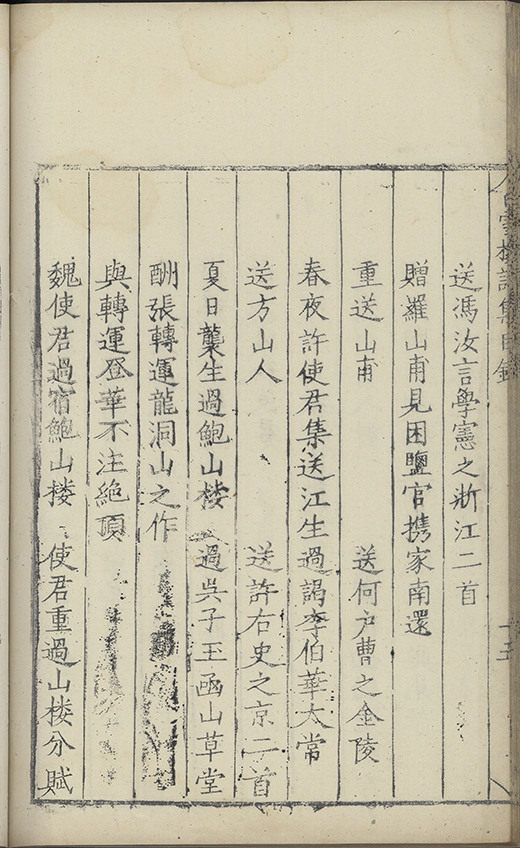 送馮汝言學憲之浙江二首
贈羅山甫見困鹽官攜家南還
重送山甫 送何戶曹之金陵
春夜許使君集送江生過謁李伯華太常
送方山人 送許右史之京二首
夏日龔生過鮑山楼 過吳子王函山草堂
酬張轉運龍洞山之作
與轉運登華不注絕頂
魏使君過宿鮑山楼 使君重過山楼分賦